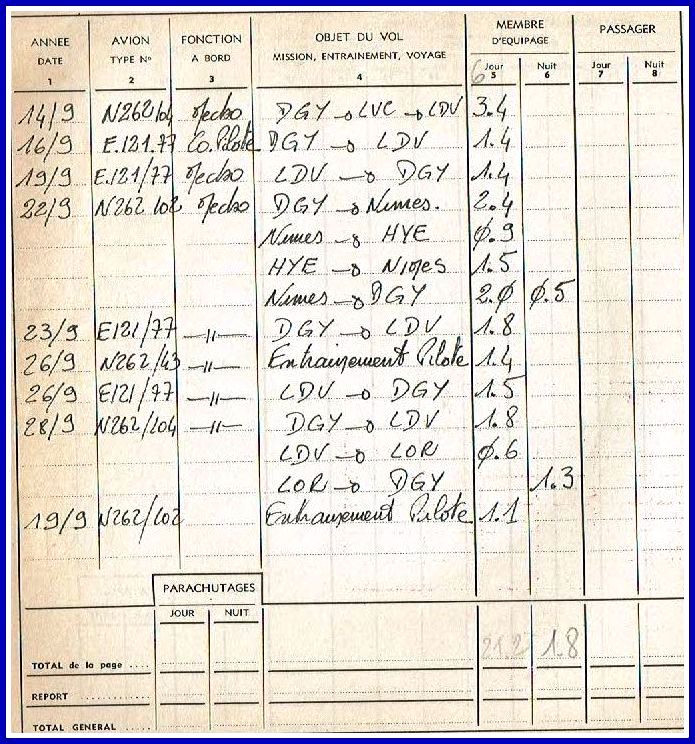 ANNEE AVION FONCTION OBJET DU VOL MEMBRE D'EQUIPAGE PASSAGER
DATE TYPE N° A BORD MISSION, ENTRAINEMENT, VOYAGE Jour Nuit Jour Nuit
1 2 3 4 6 5 6 7 8
14/9 N262/104 Mecbo DGY → LVC → LDV 3.4
16/9 E.121.77 Co.Pilote DGY → LDV 1.4
19/9 E.121/77 Mecbo LDV → DGY 1.4
22/9 N262 102 Mecbo DGY → Nimes. 2.4
Nimes → HYE Ø.9
HYE → Nimes 1.5
Nimes → DGY 2.Ø Ø.5
23/9 E121/77 —"— DGY → LDV 1.8
26/9 N262/43 —"— Entrainement Pilote 1.4
26/9 E121/77 —"— LDV → DGY 1.5
28/9 N262/104 —"— DGY → LDV 1.8
LDV → LOR Ø.6
LOR → DGY 1.3
19/9 N262/102 Entrainement Pilote 1.1
PARACHUTAGES
JOUR NUIT
TOTAL de la page .... 21.2 1.8
REPORT ............
TOTAL GENERAL .....